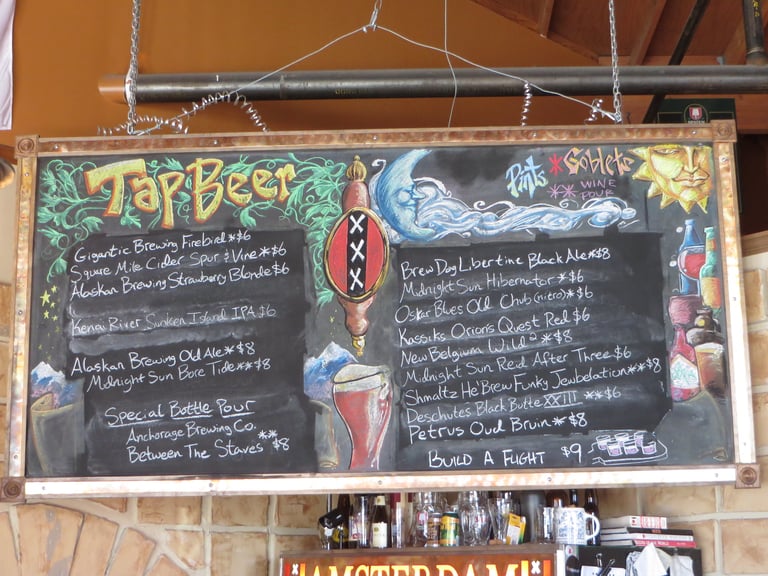 Tap Beer
Gigantic Brewing Firebird * $6
Square Mile Cider Spur & Vine * $6
Alaskan Brewing Strawberry Blonde $6
Kenai River Sunken Island IPA $6
Alaskan Brewing Old Ale * $8
Midnight Sun Bore Tide ** $8
Special Bottle Pour
Anchorage Brewing Co.
Between The Staves ** $8
XXX
Pints * Goblets
** WINE
POUR
Brew Dog Libertine Black Ale * $8
Midnight Sun Hibernator * $6
Oskar Blues Old Chub (nitro) * $6
Kassiks Orion's Quest Red $6
New Belgium Wild² * $8
Midnight Sun Red After Three $6
Shmaltz He'Brew Funky Jewbelation ** $8
Deschutes Black Butte XXIII ** $6
Petrus Oud Bruin * $8
BUILD A FLIGHT $9
AMSTERDAM